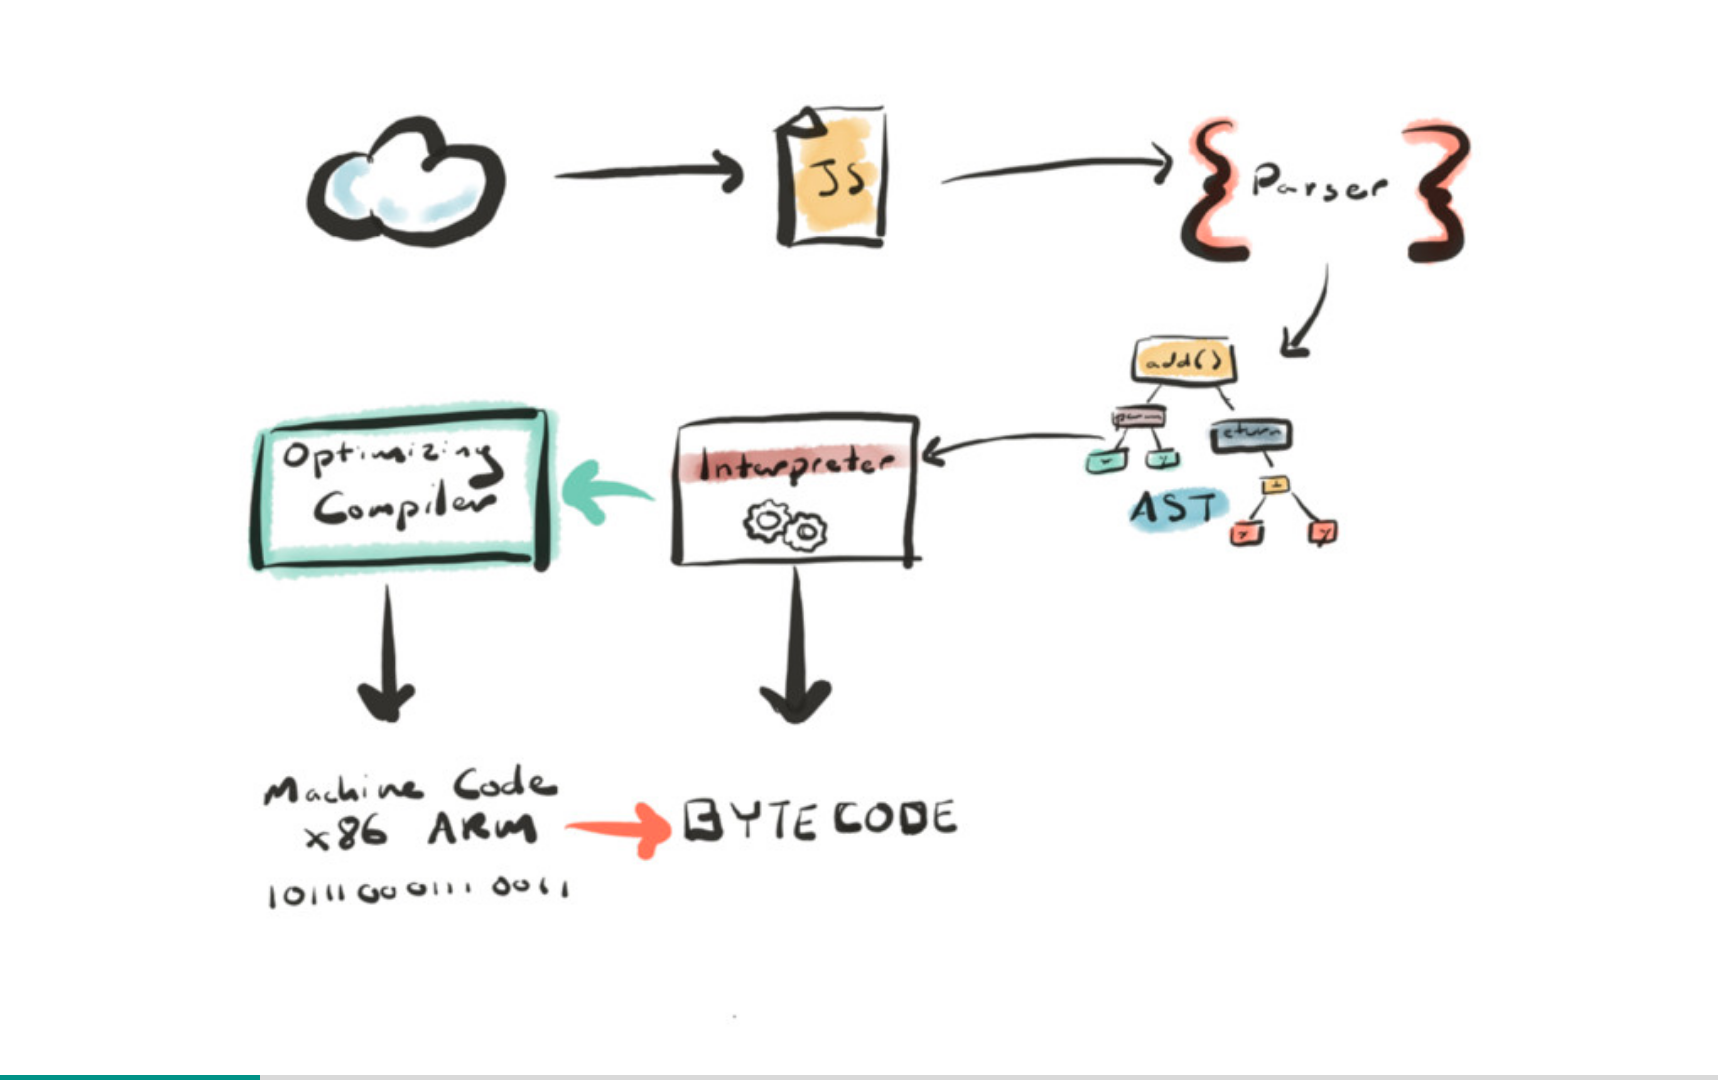 JS
Parser
add()
param
return
x
y
+
x
y
AST
Interpreter
Optimizing
Compiler
Machine Code
x86 ARM
BYTECODE